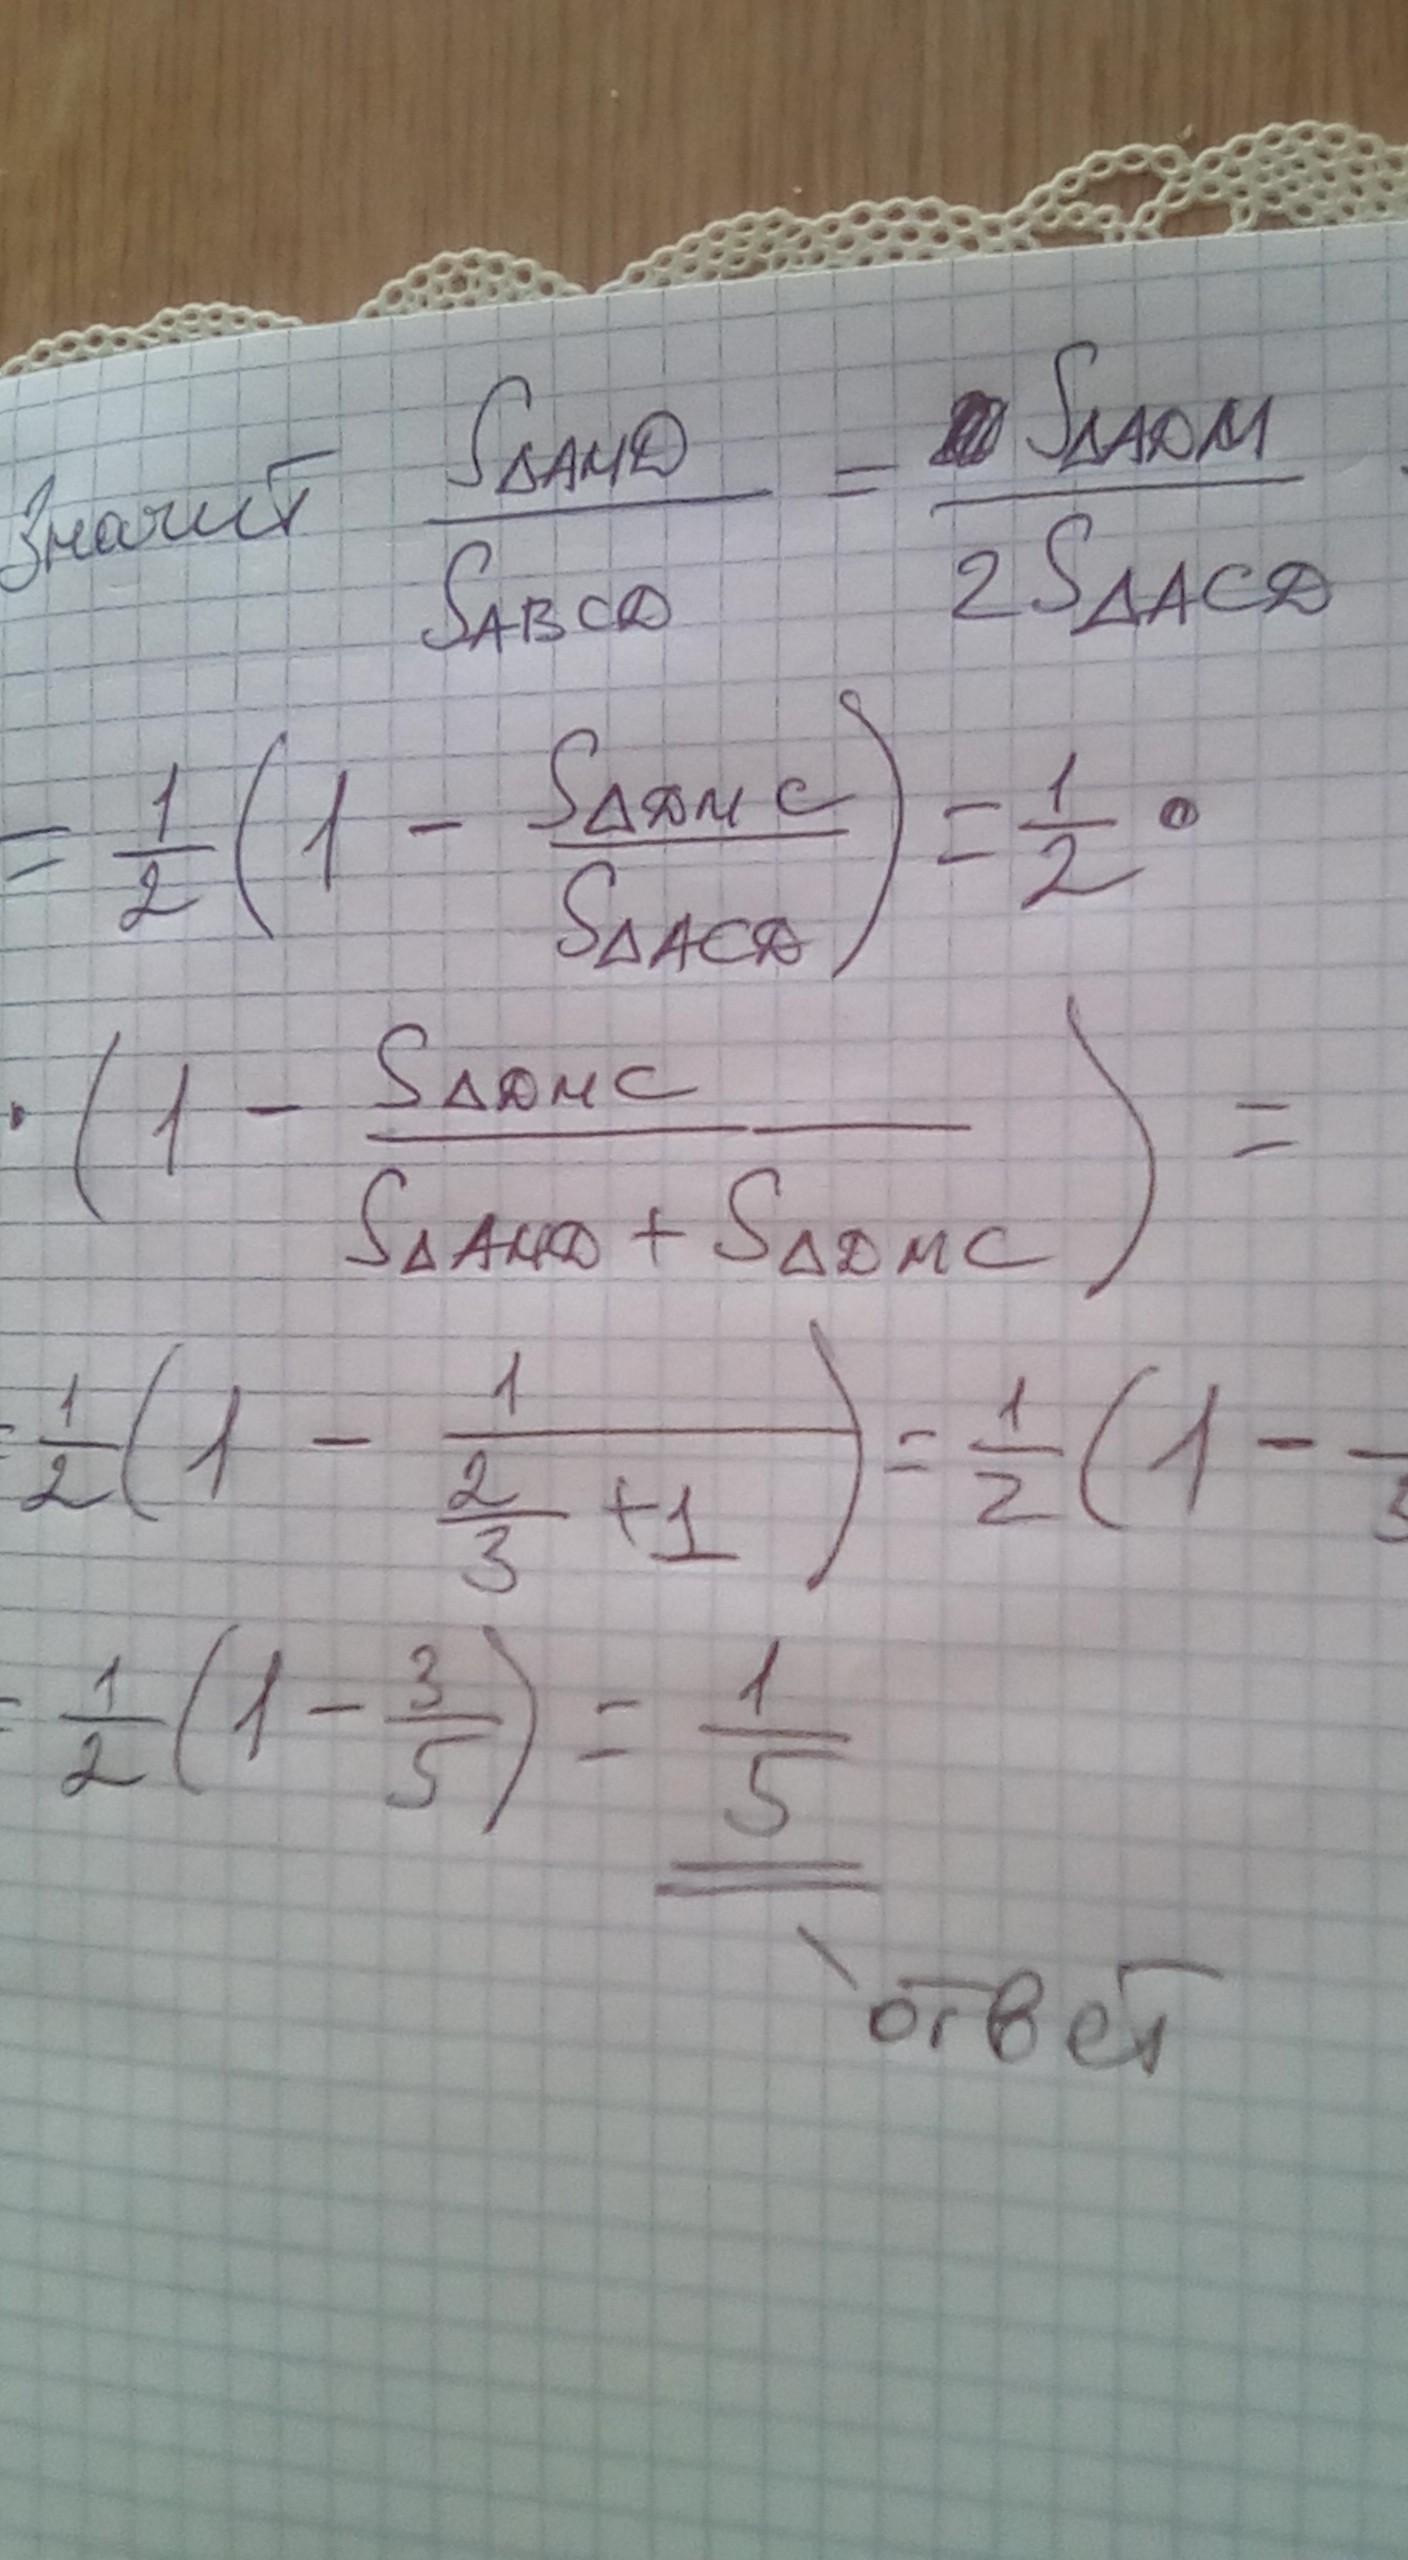 Значит S△AMD / S ABCD = S△ADM / 2S△ACD
= 1/2 (1 - S△DMC / S△ACD) = 1/2 ·
· (1 - S△DMC / (S△AMD + S△DMC)) =
= 1/2 (1 - 1 / (2/3 + 1)) = 1/2 (1 -
= 1/2 (1 - 3/5) = 1/5
ответ